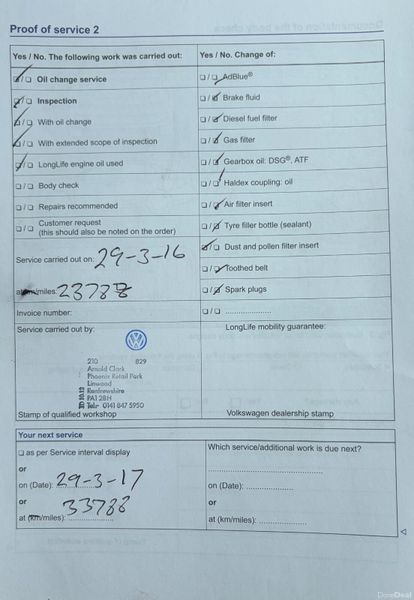 Proof of service 2
Yes / No. The following work was carried out:
Oil change service
Inspection
With oil change
With extended scope of inspection
LongLife engine oil used
Body check
Repairs recommended
Customer request
(this should also be noted on the order)
Service carried out on: 29-3-16
at km/miles: 23788
Invoice number:
Yes / No. Change of:
AdBlue®
Brake fluid
Diesel fuel filter
Gas filter
Gearbox oil: DSG®, ATF
Haldex coupling: oil
Air filter insert
Tyre filler bottle (sealant)
Dust and pollen filter insert
Toothed belt
Spark plugs
Service carried out by:
210 829
Arnold Clark
Phoenix Retail Park
Linwood
Renfrewshire
PA1 2BH
Tel: 0141 847 5950
Stamp of qualified workshop
LongLife mobility guarantee:
Volkswagen dealership stamp
Your next service
as per Service interval display
or
on (Date): 29-3-17
or
at (km/miles): 33788
Which service/additional work is due next?
on (Date):
or
at (km/miles):
DoneDeal